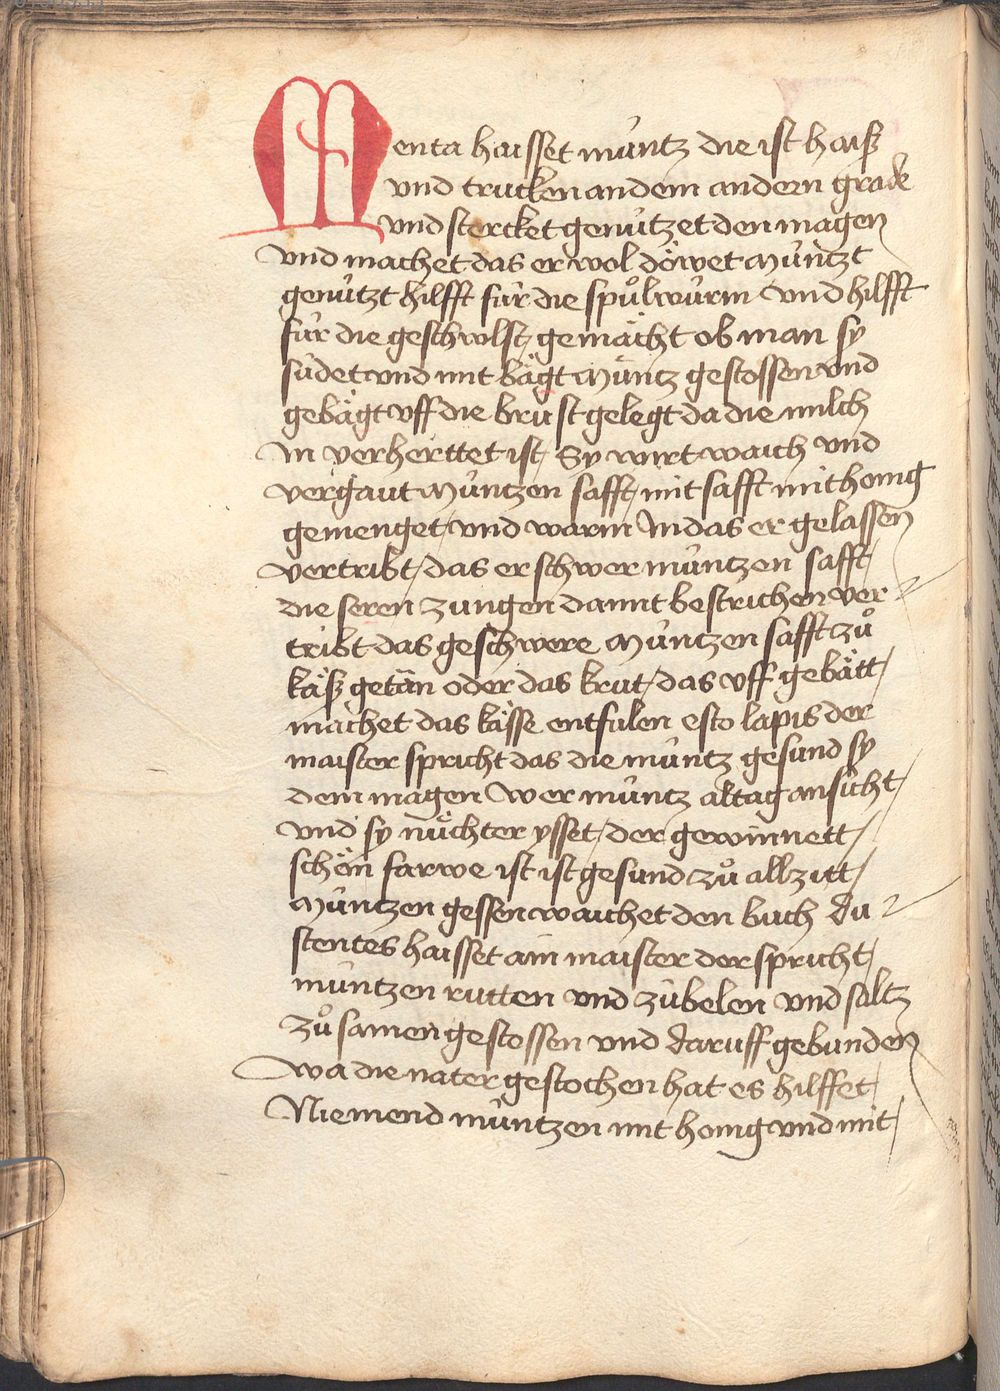 Menta haisset müntz die ist haiß
vnd trucken an dem andern grade
vnd stercket genützet den magen
vnd machet das er wol döwet Müntzt
genützt hilfft für die spůlwürm vnd hilfft
für die geschwlst, gemächt ob man sy
südet vnd mit bägt Müntz gestossen vnd
gebägt vff die brust gelegt da die milch
In verherttet ist, Sy wirt waich vnd
vergaut Müntzen safft, mit safft mit honig
gemenget, vnd warm In das er gelassen
vertribt, das er schwer müntzen safft,
die seren zungen damit bestrichen ver
tribt das geschwere Müntzen safft zů
käß getän oder das krut, das vff gebätt,
machet das kässe entfulen esto lapis der
maister spricht das die müntz gesund sy
dem magen Wer müntz altag ansicht,
vnd sy nüchter ysset, der gewinnett,
schön farwe ist ist gesund zů allzitt,
Müntzen gessen waichet den buch du
stentes haisset ain maister der spricht,
müntzen rutten vnd zübelen vnd saltz
zů samen gestossen vnd daruff gebunden
wa die nater gestochen hat es hilffet,
Niemend müntzen mit honig vnd mit,